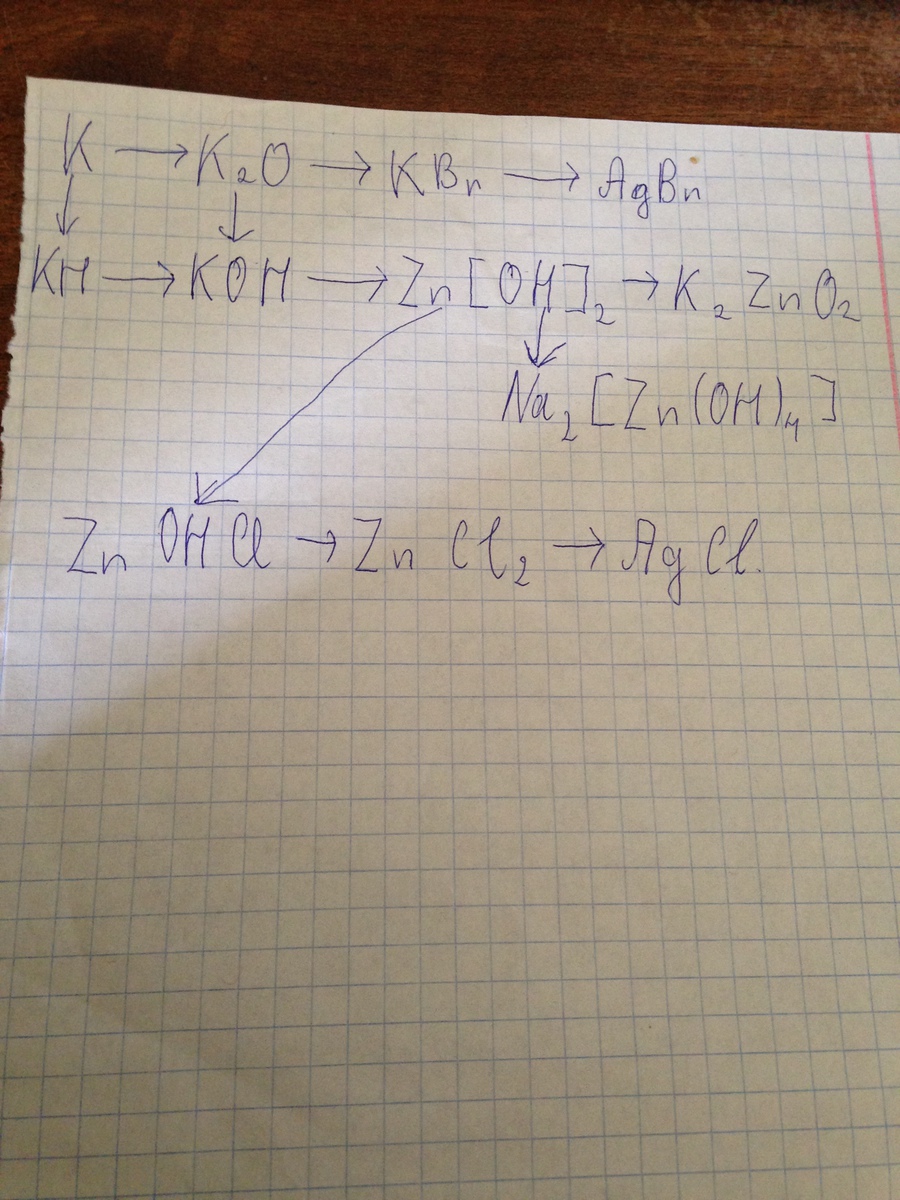 K → K₂O → KBr → AgBr
↓ ↓
KH → KOH → Zn[OH]₂ → K₂ZnO₂
↓
Na₂[Zn(OH)₄]
Zn OHCl → ZnCl₂ → AgCl.